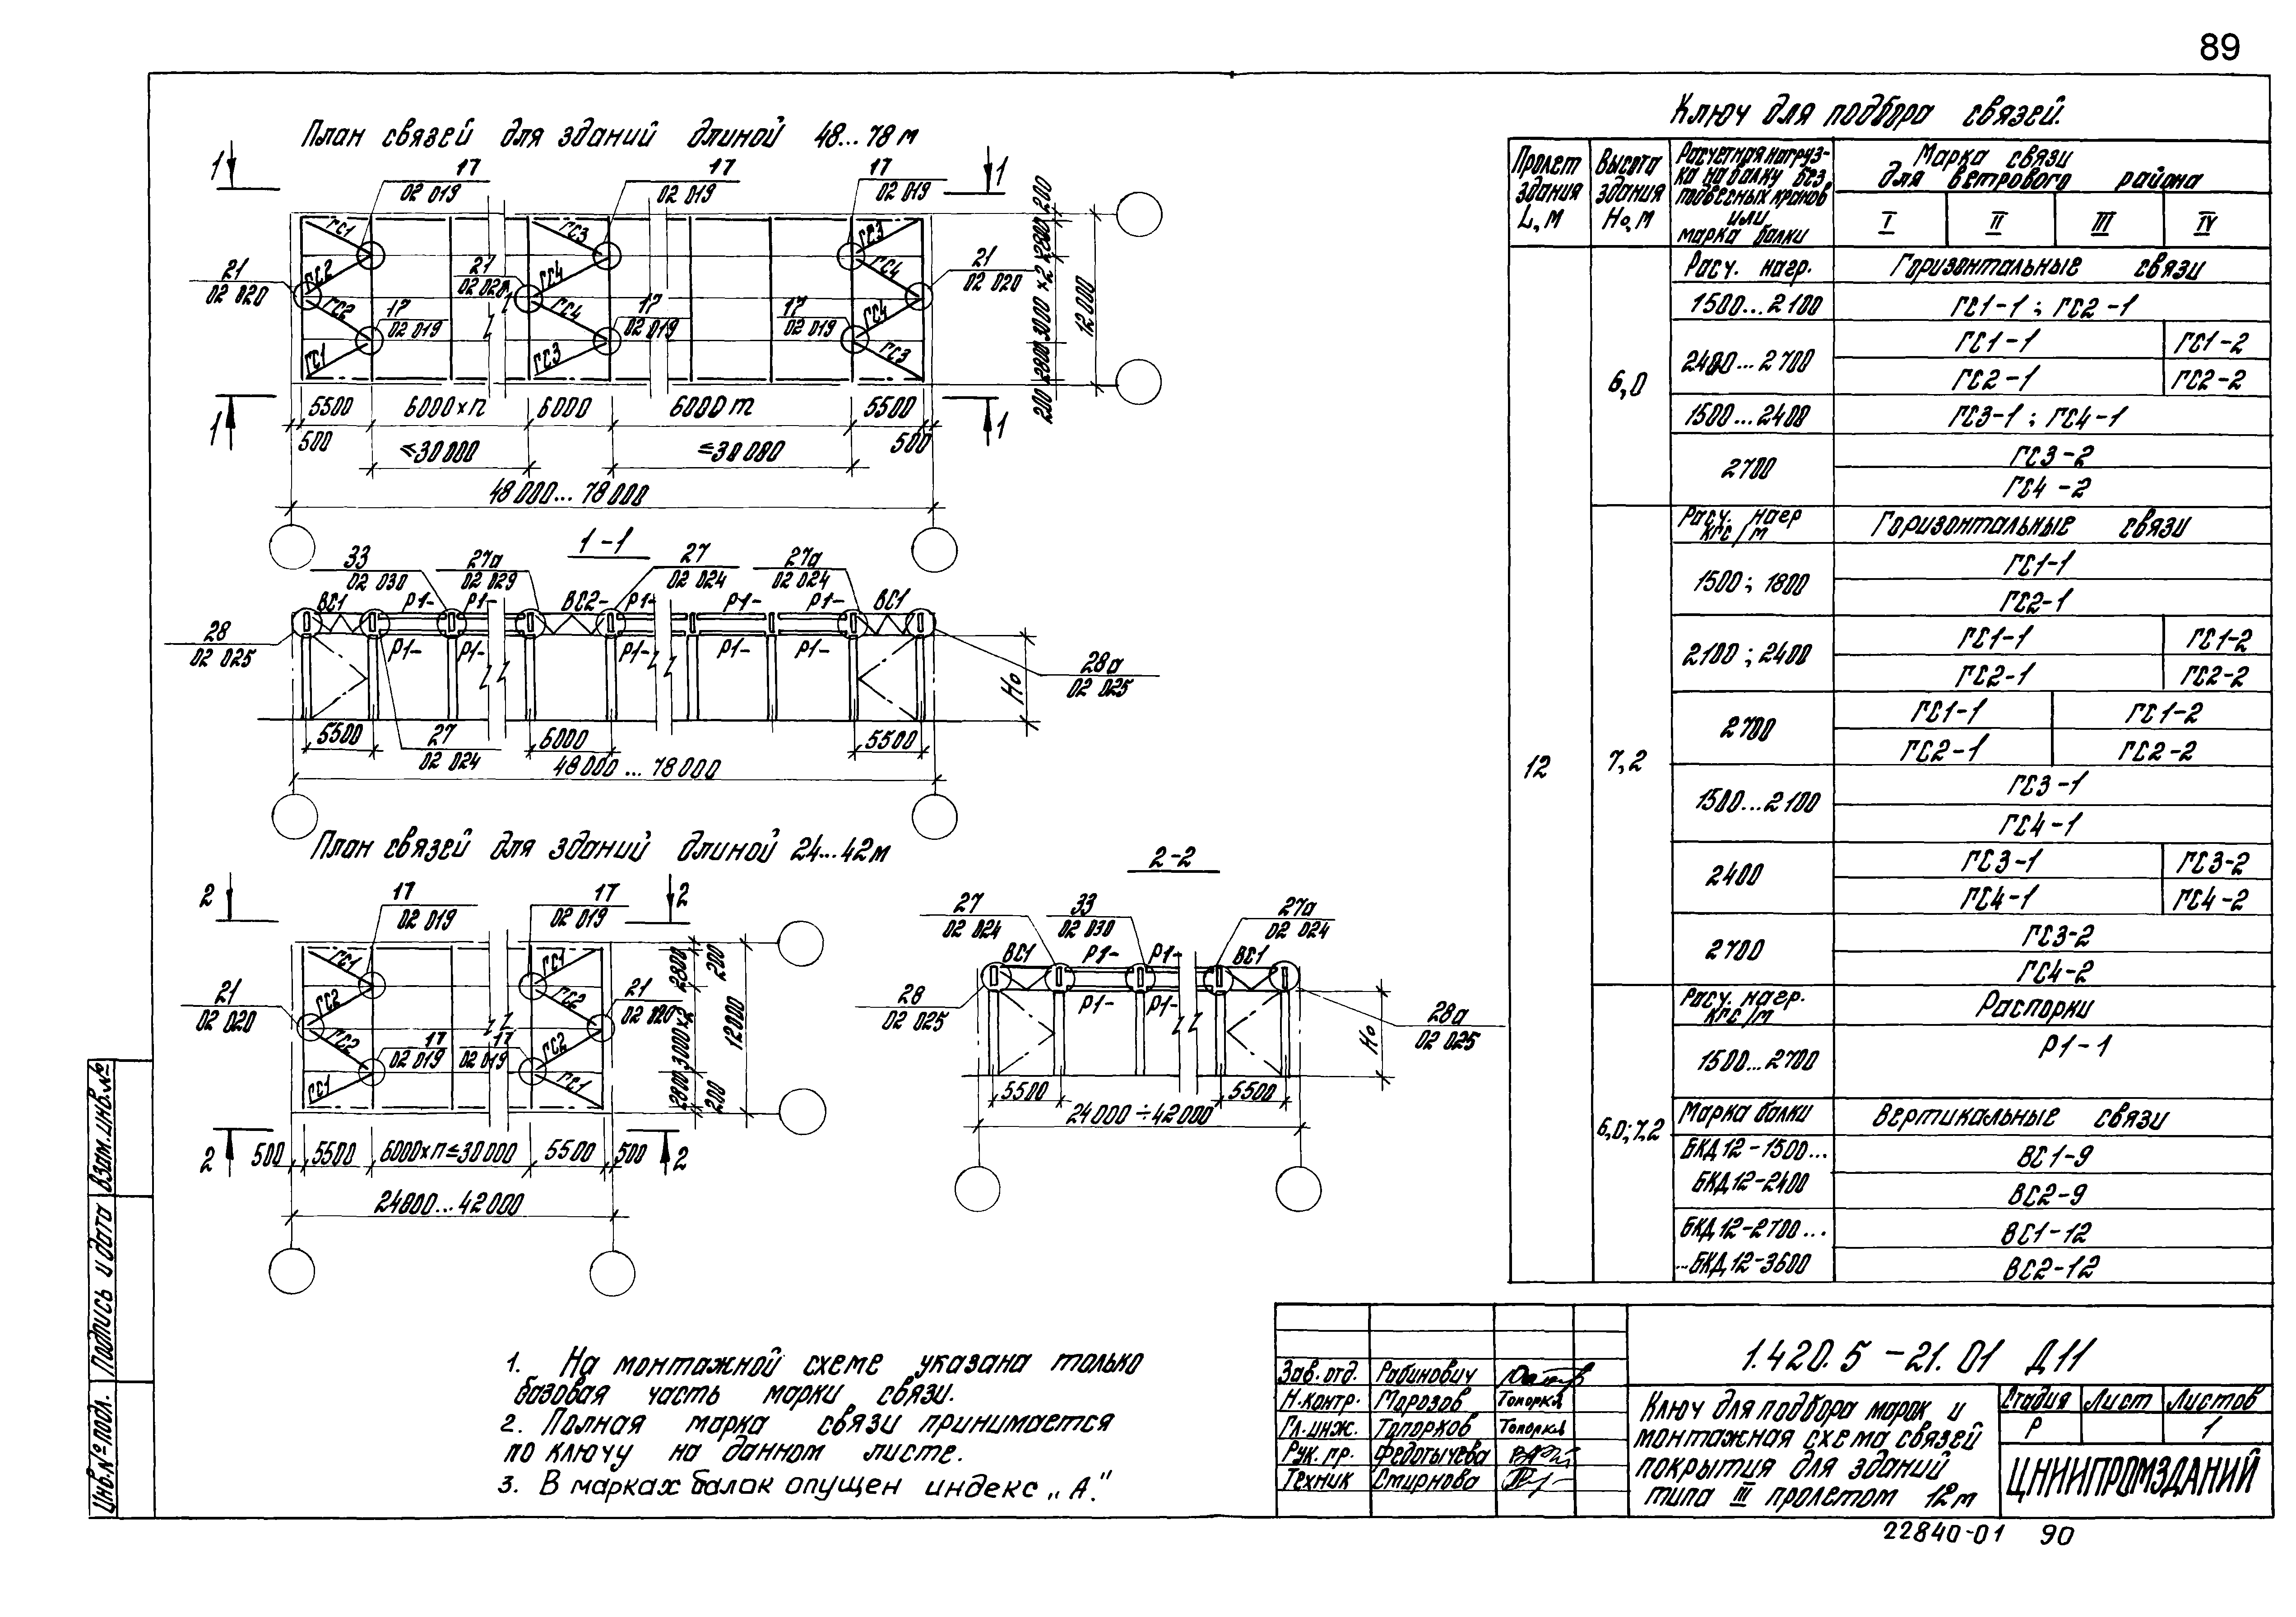 89
План связей для зданий длиной 48...78 м
1 1
17 17 17
02 019 02 019 02 019
ГС1 ГС3 ГС3
21 ГС2 21 ГС4 ГС4 21
02 020 02 020 02 020
ГС2 17 ГС4 17 17 ГС4
02 019 02 019 02 019
ГС1 ГС3 ГС3
200 2800 3000×2 2800 200
12 000
1 5500 6000×п 6000 6000 m 5500 1
500 ≤30 000 ≤30 000 500
48 000... 78 000
1-1
33 27а 27 27а
02 030 02 029 02 024 02 024
ВС1 Р1- Р1- ВС2- Р1- Р1- Р1- ВС1
28 Р1- Р1- Р1- Р1- Р1- 28а
02 025 02 025
Н₀
5500 27 6000 5500
02 024
48 000 ... 78 000
План связей для зданий длиной 24...42м
2 2
17 17
02 019 02 019
ГС1 ГС1
21 ГС2 ГС2 21
02 020 02 020
ГС2 17 17 ГС2
02 019 02 019
ГС1 ГС1
2800 200
3000×2 12000
2800 200
2 500 5500 6000×п≤30 000 5500 500 2
24 000... 42 000
2-2
27 33 27а
02 024 02 030 02 024
ВС1 Р1- Р1- ВС1
28 Р1- Р1- 28а
02 025 02 025
Н₀
5500 5500
24 000 ÷ 42 000
Ключ для подбора связей.
Пролет здания L, м
Высота здания Н₀, м
Расчетная нагруз-
ка на балку без
подвесных кранов
или
марка балки
Марка связи
для ветрового района
I II III IV
12
6,0
Расч. нагр. Горизонтальные связи
1500...2100 ГС1-1 ; ГС2-1
2400...2700 ГС1-1 ГС1-2
ГС2-1 ГС2-2
1500...2400 ГС3-1 ; ГС4-1
2700 ГС3-2
ГС4-2
7,2
Расч. нагр Горизонтальные связи
кгс/м
1500; 1800 ГС1-1
ГС2-1
2100 ; 2400 ГС1-1 ГС1-2
ГС2-1 ГС2-2
2700 ГС1-1 ГС1-2
ГС2-1 ГС2-2
1500...2100 ГС3-1
ГС4-1
2400 ГС3-1 ГС3-2
ГС4-1 ГС4-2
2700 ГС3-2
ГС4-2
6,0;7,2
Расч. нагр. Распорки
кгс/м
1500...2700 Р1-1
Марка балки Вертикальные связи
БКД 12-1500... ВС1-9
БКД 12-2400 ВС2-9
БКД 12-2700... ВС1-12
...БКД 12-3600 ВС2-12
1. На монтажной схеме указана только
базовая часть марки связи.
2. Полная марка связи принимается
по ключу на данном листе.
3. В марках балок опущен индекс „А."
Инв.№ подл. Подпись и дата Взам.инв.№
Зав. отд. Рабинович
Н.контр. Морозов Топорков
Гл.инж. Топорков Топорков
Рук. пр. Федотычева
Техник Смирнова
1.420.5-21.01 Д11
Ключ для подбора марок и
монтажная схема связей
покрытия для зданий
типа III пролетом 12м
Стадия Лист Листов
Р 1
ЦНИИПРОМЗДАНИЙ
22840-01 90